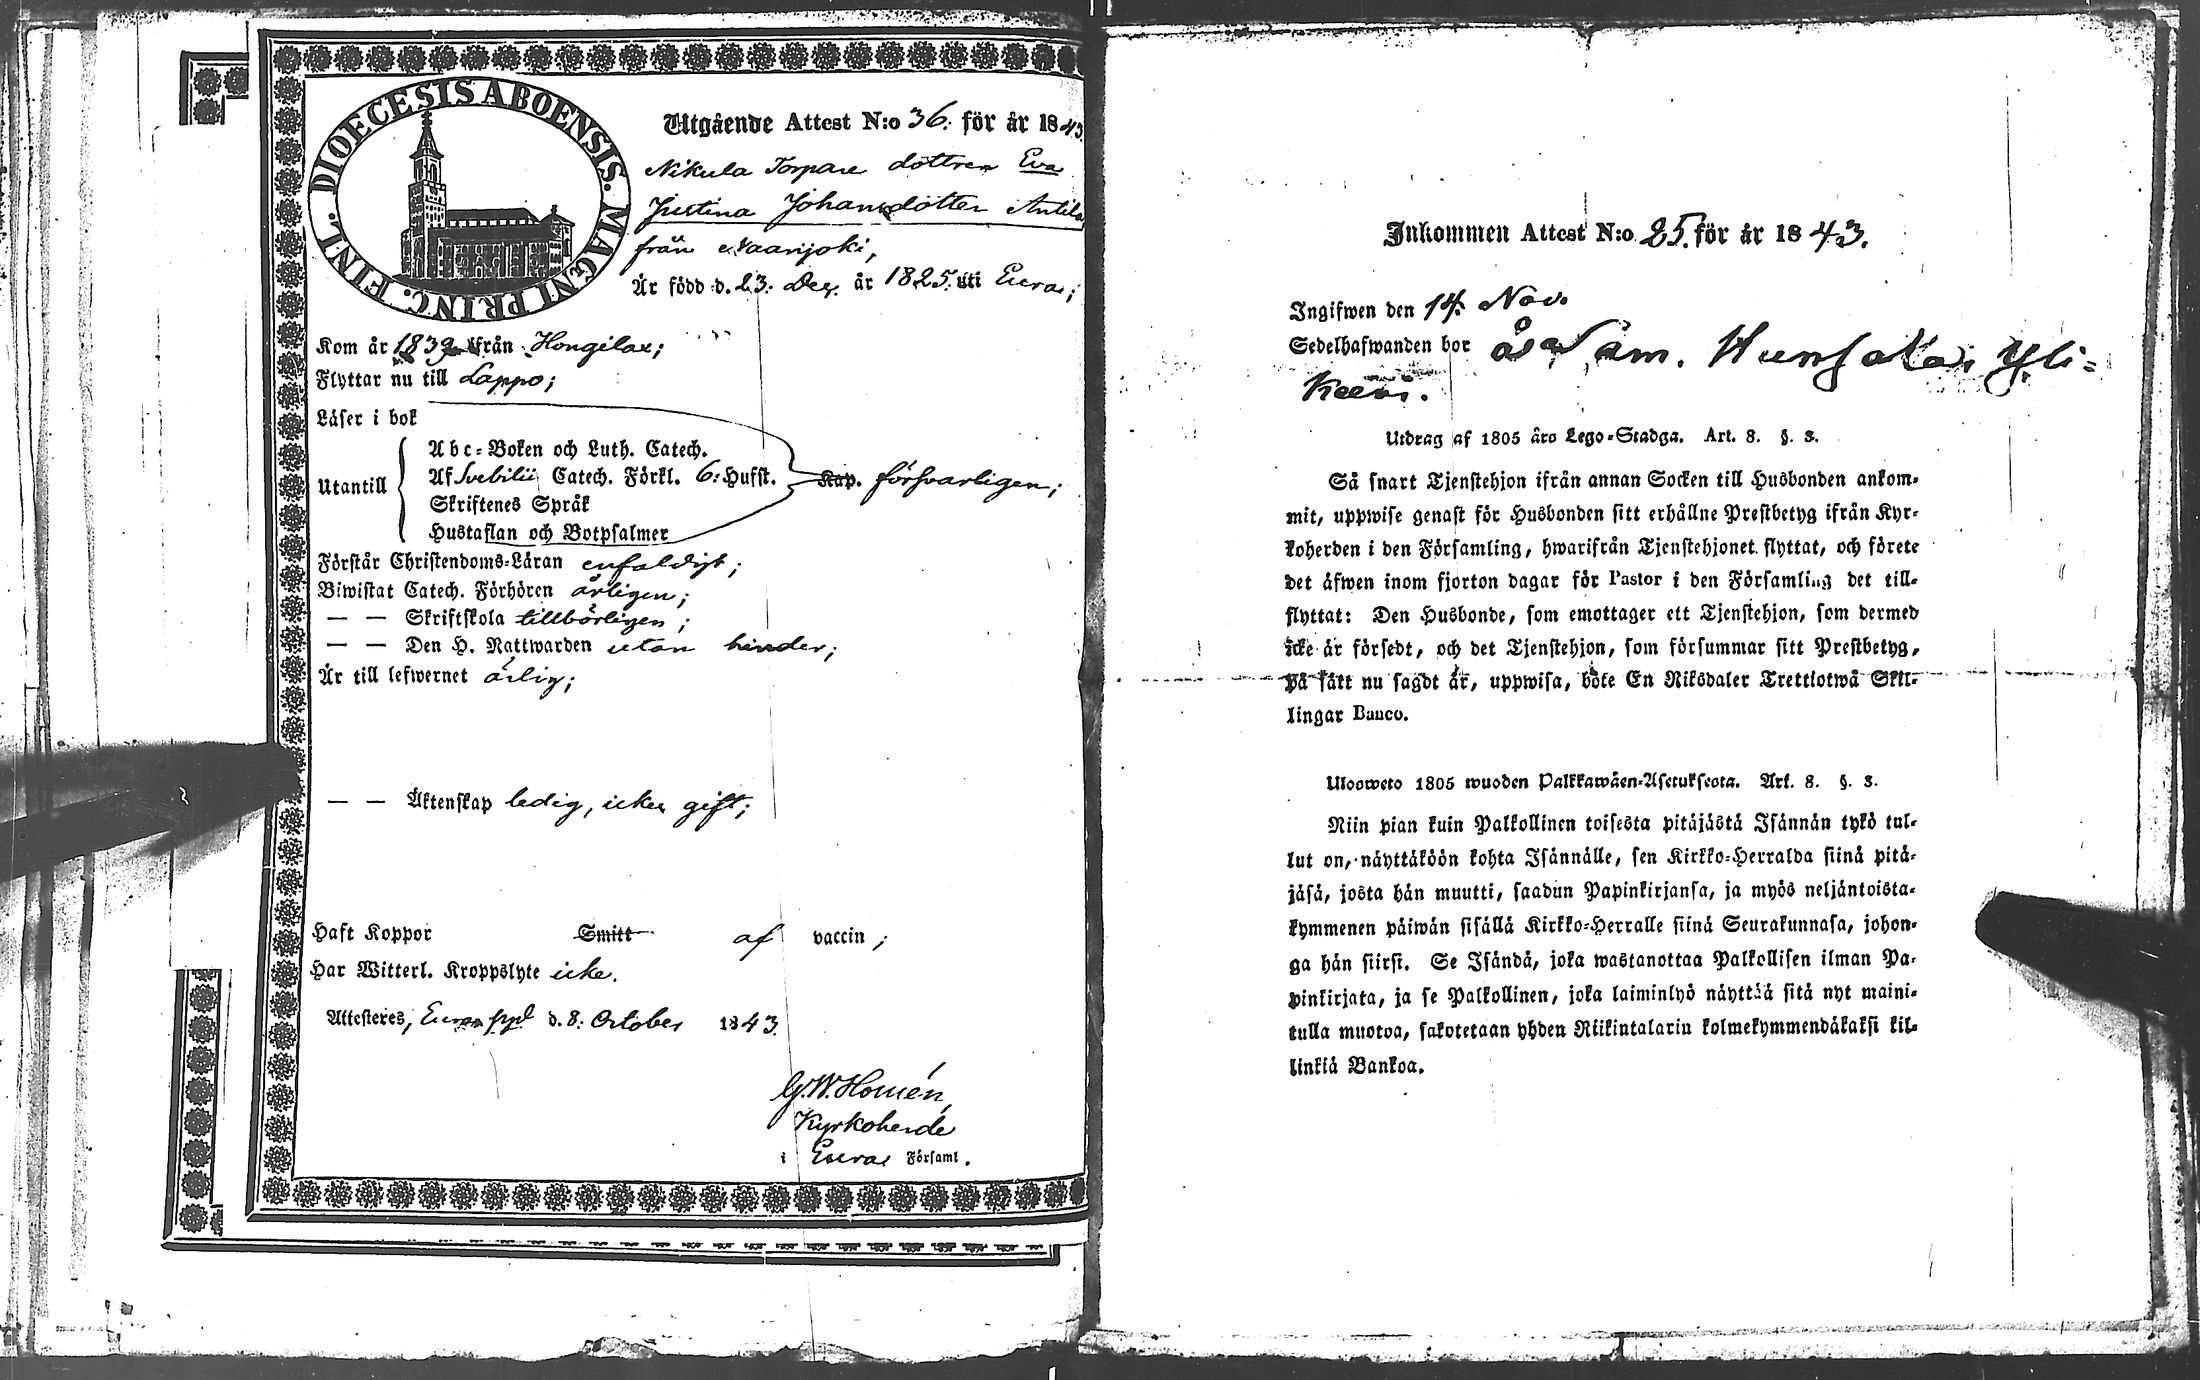 DIOECESIS ABOENSIS. MAGNI PRINC. FINL.
Utgående Attest N:o 36. för år 1843
Nikula Torpare dottren Eva
Justina Johansdotter Antila
från Naarijoki,
Är född d. 23. Dec. år 1825. uti Eura;
Kom år 1839 ifrån Hongilax;
Flyttar nu till Lappo;
Läser i bok
Utantill
Abc-Boken och Luth. Catech.
Af Svebilii Catech. Förkl. 6: Hufst. Kap. försvarligen;
Skriftenes Språk
Hustaflan och Botpsalmer
Förstår Christendoms-Läran enfaldigt;
Biwistat Catech. Förhören årligen;
— — Skriftskola tillbörligen;
— — Den H. Nattwarden utan hinder;
Är till lefwernet ärlig;
— — Äktenskap ledig, icke gift;
Haft Koppor Smitt af vaccin;
Har Witterl. Kroppslyte icke.
Attesteres, Eura ppd d. 8: October 1843.
G.W. Homén,
Kyrkoherde
i Eura Församl.
Inkommen Attest N:o 25. för år 1843.
Ingifwen den 14. Nov.
Sedelhafwanden bor Yli-
Utdrag af 1805 års Lego-Stadga. Art. 8. §. 3.
Så snart Tjenstehjon ifrån annan Socken till Husbonden ankom-
mit, uppwise genast för Husbonden sitt erhållne Prestbetyg ifrån Kyr-
koherden i den Församling, hwarifrån Tjenstehjonet flyttat, och förete
det äfwen inom fjorton dagar för Pastor i den Församling det till-
flyttat: Den Husbonde, som emottager ett Tjenstehjon, som dermed
icke är försedt, och det Tjenstehjon, som försummar sitt Prestbetyg,
på sätt nu sagdt är, uppwisa, böte En Riksdaler Trettiotwå Skil-
lingar Banco.
Ulosweto 1805 wuoden Palkkawäen-Asetuksesta. Art. 8. §. 3.
Niin pian kuin Palkollinen toisesta pitäjästä Isännän tykö tul-
lut on, näyttäköön kohta Isännälle, sen Kirkko-Herralda siinä pitä-
jäsä, josta hän muutti, saadun Papinkirjansa, ja myös neljäntoista-
kymmenen päiwän sisällä Kirkko-Herralle siinä Seurakunnasa, johon-
ga hän siirsi. Se Isändä, joka wastanottaa Palkollisen ilman Pa-
pinkirjata, ja se Palkollinen, joka laiminlyö näyttää sitä nyt maini-
tulla muotoa, sakotetaan yhden Riikintalariu kolmekymmendäkaksi kil-
linkiä Bankoa.